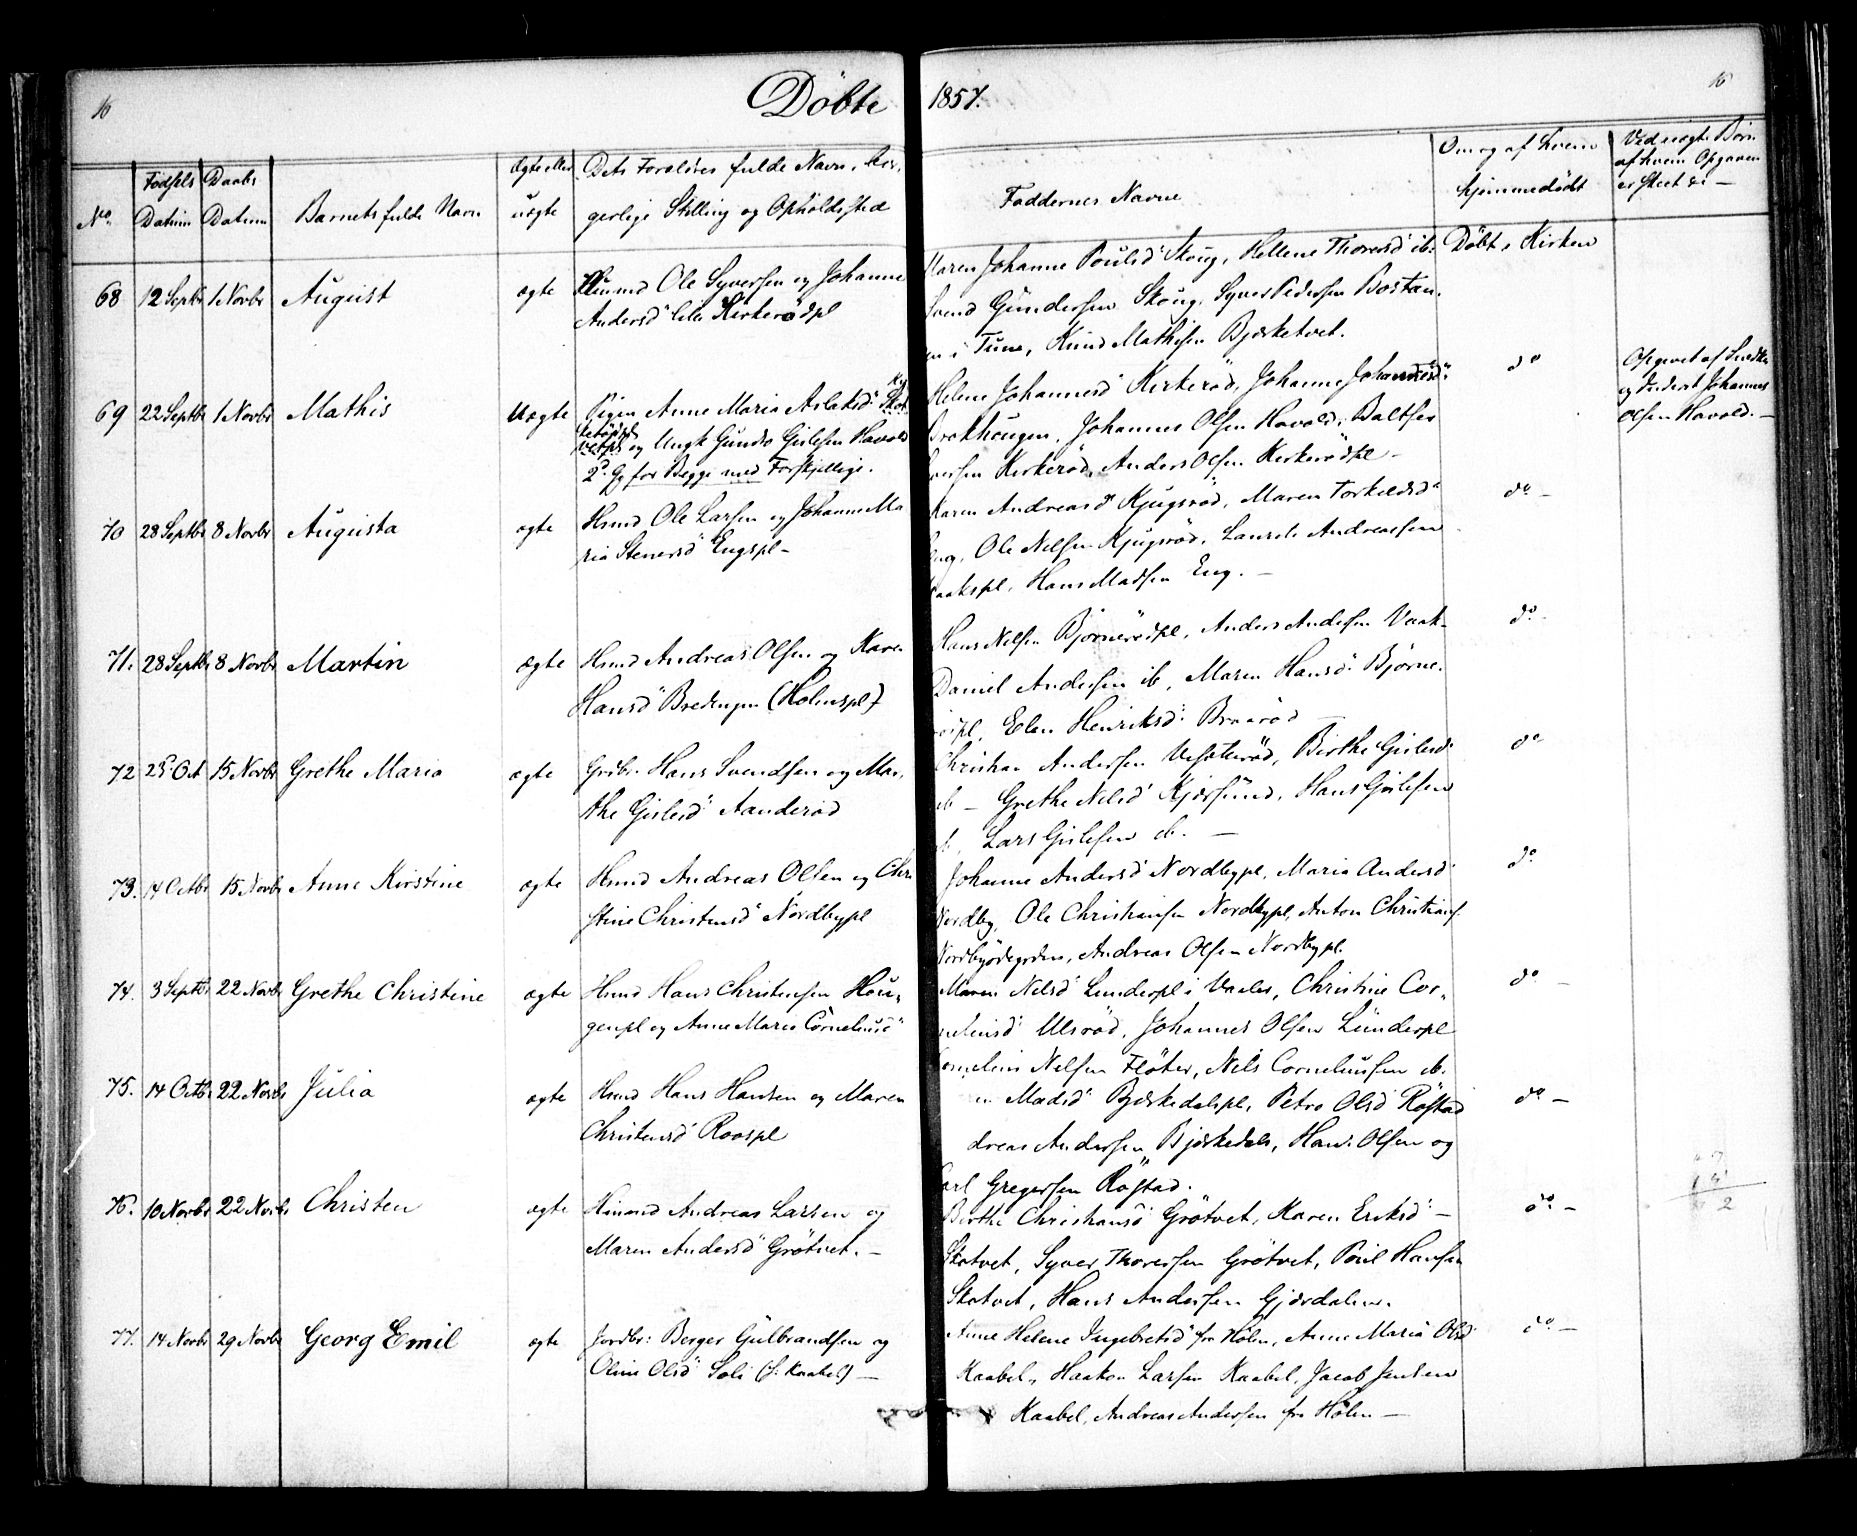 16
Döbte 1857.
16
No.
Födsels Datum
Daabs Datum
Barnets fulde Navn
Ægte eller uægte
Dets Forældres fulde Navn, bor-
gerlige Stilling og Opholdssted
Faddernes Navne
Om og af hvem
hjemmedöbt
Ved uægte Børn
af hvem Opgaven
er skeet &c —
68 12 Septbr 1 Novbr August ægte Huusmd Ole Syversen og Johanne
Andersd. lille Kirkerödpl
Maren Johanne Poulsd. Skoug, Hellene Thoresd. ib. Döbt i Kirken
Svend Gundersen Skoug, Syver Pedersen Bostan-
en i Tune, Knud Mathisen Bjerketvet.
69 22 Septbr 1 Novbr Mathis Uægte Pigen Anne Maria Aslaksd.
og Ungk Gunder Gislesen Havold
2d. Gg for Begge med Forskjellige.
Helene Johannesd. Kirkeröd, Johanne Johannesd. do
Brækhougen, Johannes Olsen Havold, Baltser
Iversen Kirkeröd, Anders Olsen Kirkerödpl —
Opgivet af
Johannes
Olsen Havold. —
70 28 Septbr 8 Novbr Augusta ægte Hsmd Ole Larsen og Johanne Ma-
ria Stenersd. Engspl —
Karen Andreasd. Kjugeröd, Maren Torkildsd. do —
Eng, Ole Nilsen Kjugeröd, Laurits Andreasen
Vaakspl, Hans Madsen Eng. —
71. 28 Septbr 8 Novbr Martin Ægte Hsmd Andreas Olsen og Karen
Hansd. Bredengen (Holmspl)
Hans Nilsen Björnerödpl, Anders Andersen Vaak- do.
Daniel Andersen ib, Maren Hansd. Björne-
rödpl, Elen Henriksd. Braaröd —
72 25. Oct 15 Novbr Grethe Maria ægte Grdbr. Hans Svendsen og Mar-
the Gislesd. Aanderöd
Christian Andersen Vesteröd, Birthe Gislesd. do
ib — Grethe Nilsd. Kjærsund, Hans Gislesen
ib, Lars Gislesen ib. —
73. 14 Octbr 15 Novbr Anne Kirstine ægte Hsmd Andreas Olsen og Chri
stine Christensd. Nordbypl
Johanne Andersd. Nordbypl, Maria Andersd. do
Nordby, Ole Christiansen Nordbypl, Anton Christians.
Nordbyödegrden, Andreas Olsen Nordbypl.
74. 3 Septbr 22 Novbr Grethe Christine ægte Hsmd Hans Christensen Hou-
genpl og Anne Marie Cornelius d.
Maren Nilsd. Lunderpl i Vaaler, Christine Cor- do —
neliusd. Ulsröd, Johannes Olsen Lunderpl
Cornelius Nilsen Flöter, Nils Corneliussen ib.
75. 14 Octbr 22 Novbr Julia ægte Hsmd Hans Hansen og Maren
Christensd. Roospl
Madsd. Bjerkedalspl, Petra Olsd. Röstad do —
dreas Andersen Bjerkedals, Hans Olsen og
Carl Gregersen Röstad.
76. 10 Novbr 22 Novbr Christen ægte Huusmd Andreas Larsen og
Maren Andersd. Grötvet. —
Birthe Christiansd. Grötvet, Karen Eriksd. — do. —
Skotvet, Syver Thoresen Grötvet, Poul Hansen
Skotvet, Hans Andersen Gjerdalen.
77. 14 Novbr 29 Novbr Georg Emil ægte Jordbr: Berger Gulbrandsen og
Oline Olsd. Soli (f. Kaabel) —
Anne Helene Ingebretsd. fra Hölen, Anne Maria Olsd. do. —
Kaabel, Haaken Larsen Kaabel, Jacob Jensen
Kaabel, Andreas Andersen fra Hölen —